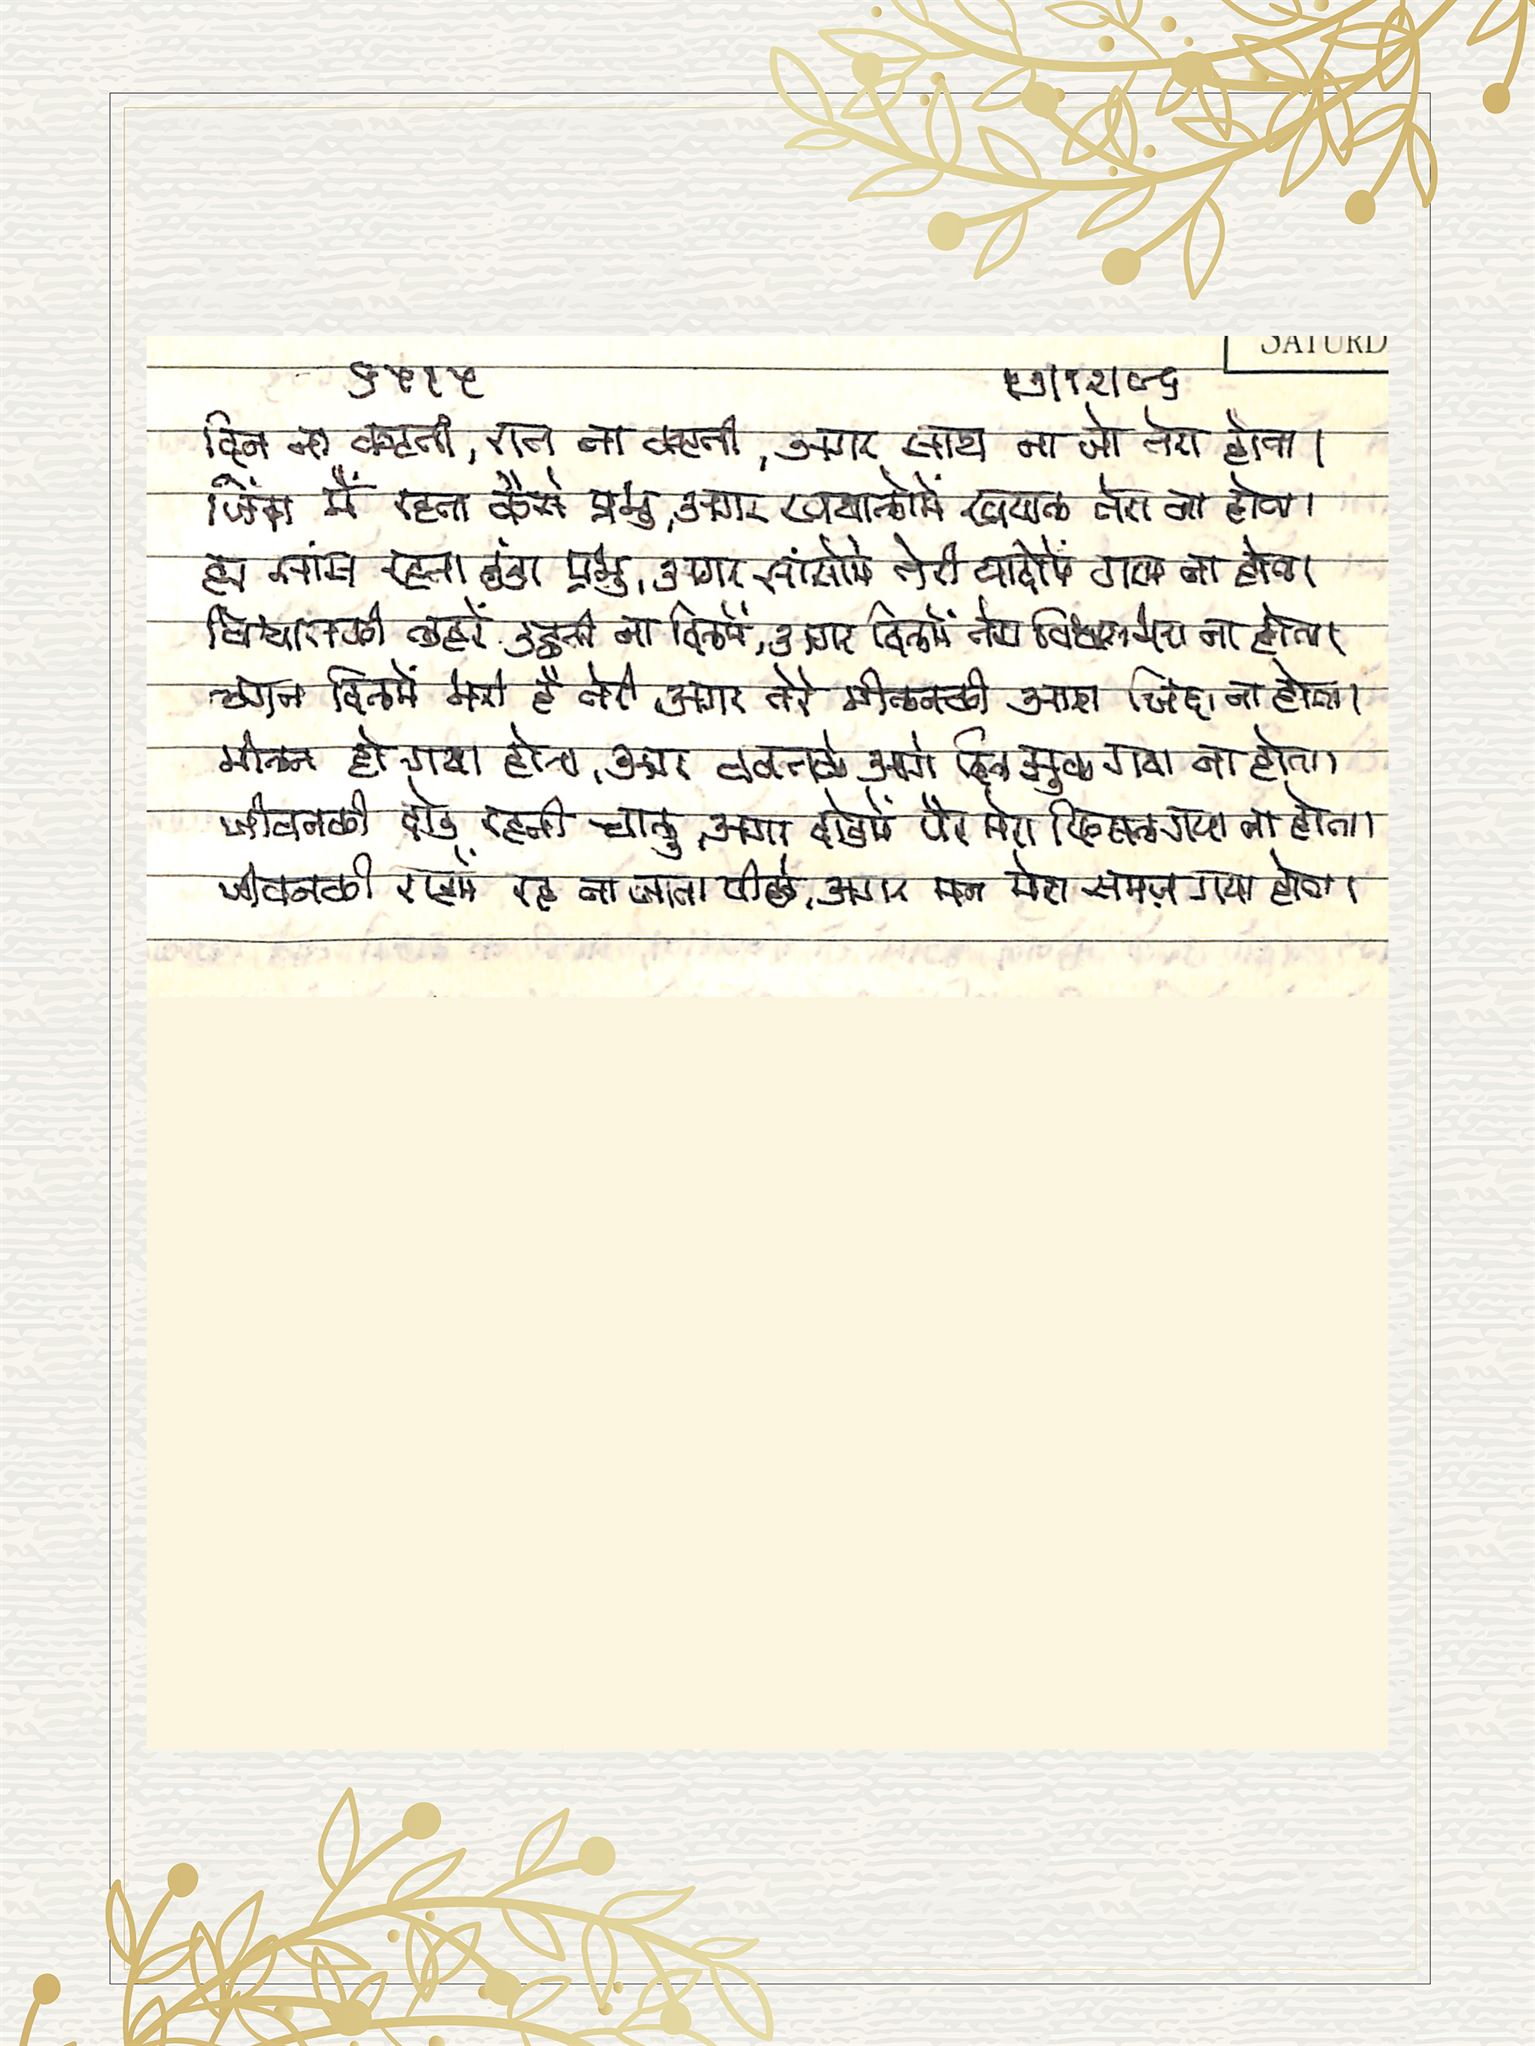 SATURD
दिन ना कटती, रात ना कटती, अगर साथ ना जो तेरा होता।
जिंदा मैं रहता कैसे प्रभु, अगर खयालोमें खयाल तेरा ना होता।
सांस रहता प्रभु, अगर सांसोमें तेरी यादोमें ना होता।
लहरें उठती ना दिलमें, अगर दिलमें तेरा विश्वास मेरा ना होता।
दिलमें भरी है तेरी अगर तेरे मीलनकी आश जिंदा ना होता।
मीलन हो गया होता, अगर वक्तके आगे दिल झुक गया ना होता।
जीवनकी दोड़ रहती चालु, अगर दोडमें पैर मेरा फिसल गया ना होता।
जीवनकी राहमें रह ना जाता पीछे, अगर मन मेरा समज़ गया होता।